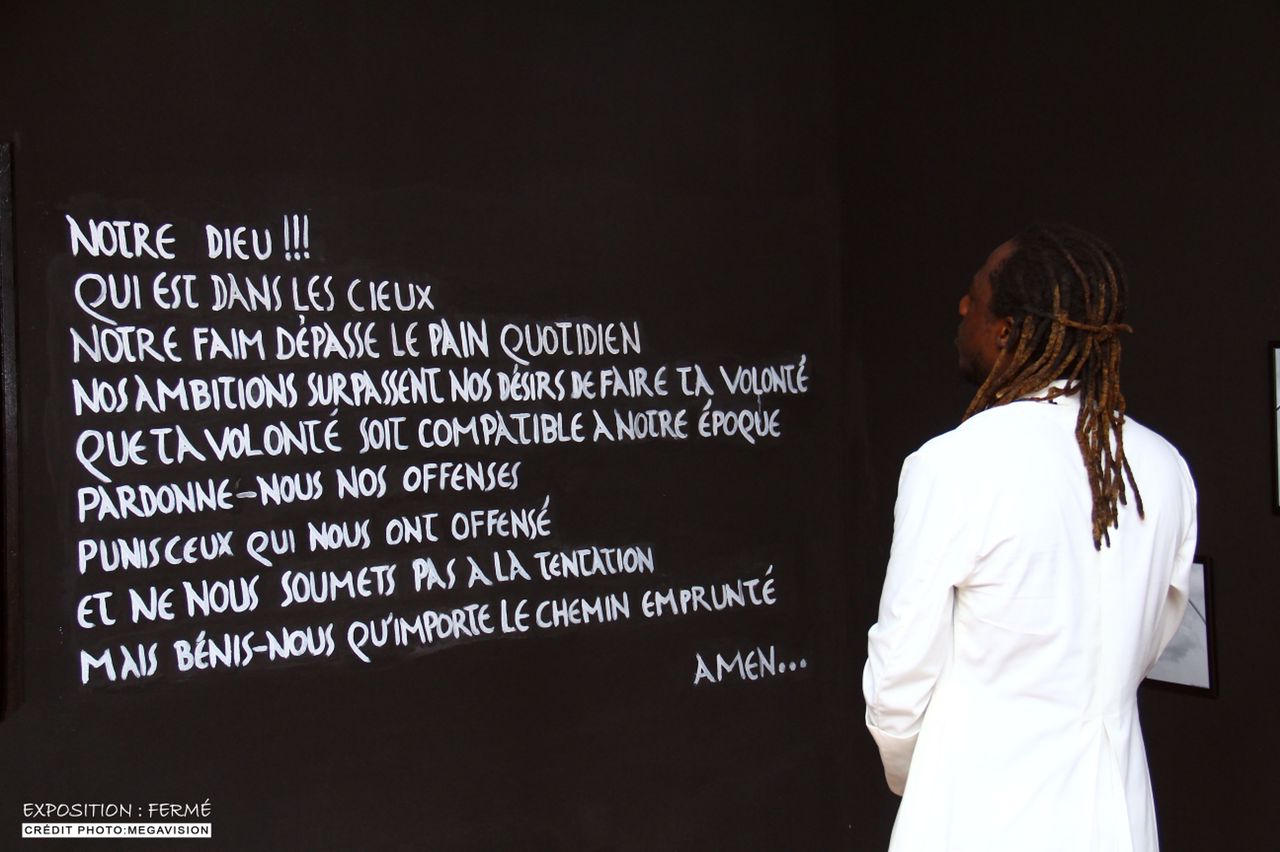 NOTRE DIEU !!!
QUI EST DANS LES CIEUX
NOTRE FAIM DÉPASSE LE PAIN QUOTIDIEN
NOS AMBITIONS SURPASSENT NOS DÉSIRS DE FAIRE TA VOLONTÉ
QUE TA VOLONTÉ SOIT COMPATIBLE A NOTRE ÉPOQUE
PARDONNE-NOUS NOS OFFENSES
PUNIS CEUX QUI NOUS ONT OFFENSÉ
ET NE NOUS SOUMETS PAS A LA TENTATION
MAIS BÉNIS-NOUS QU'IMPORTE LE CHEMIN EMPRUNTÉ
AMEN...
EXPOSITION : FERMÉ
CRÉDIT PHOTO:MEGAVISION